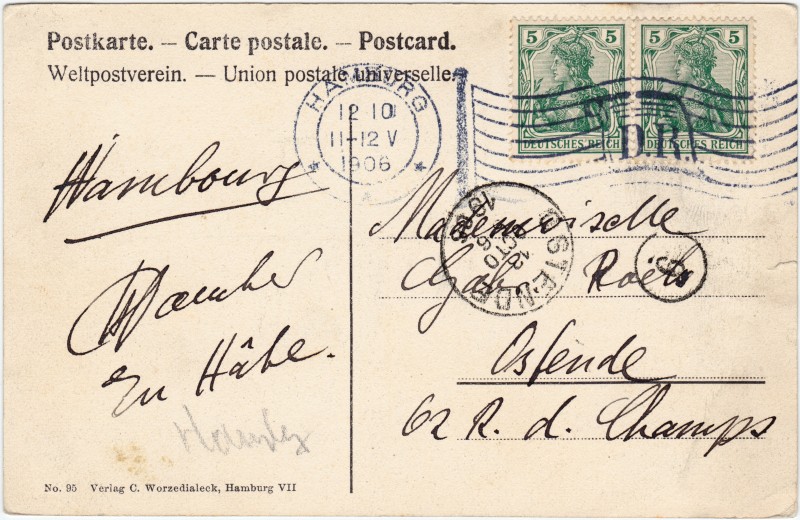 Postkarte. — Carte postale. — Postcard.
Weltpostverein. — Union postale universelle.
5 5 5 5
DEUTSCHES REICH DEUTSCHES REICH
HAMBURG
12 10
11-12 V
1906
*
D.R.
Hambourg
Mademoiselle
Roels
Ostende
62 R. d. Champs
OSTENDE
12
OCTO
1906
No. 95 Verlag C. Worzedialeck, Hamburg VII